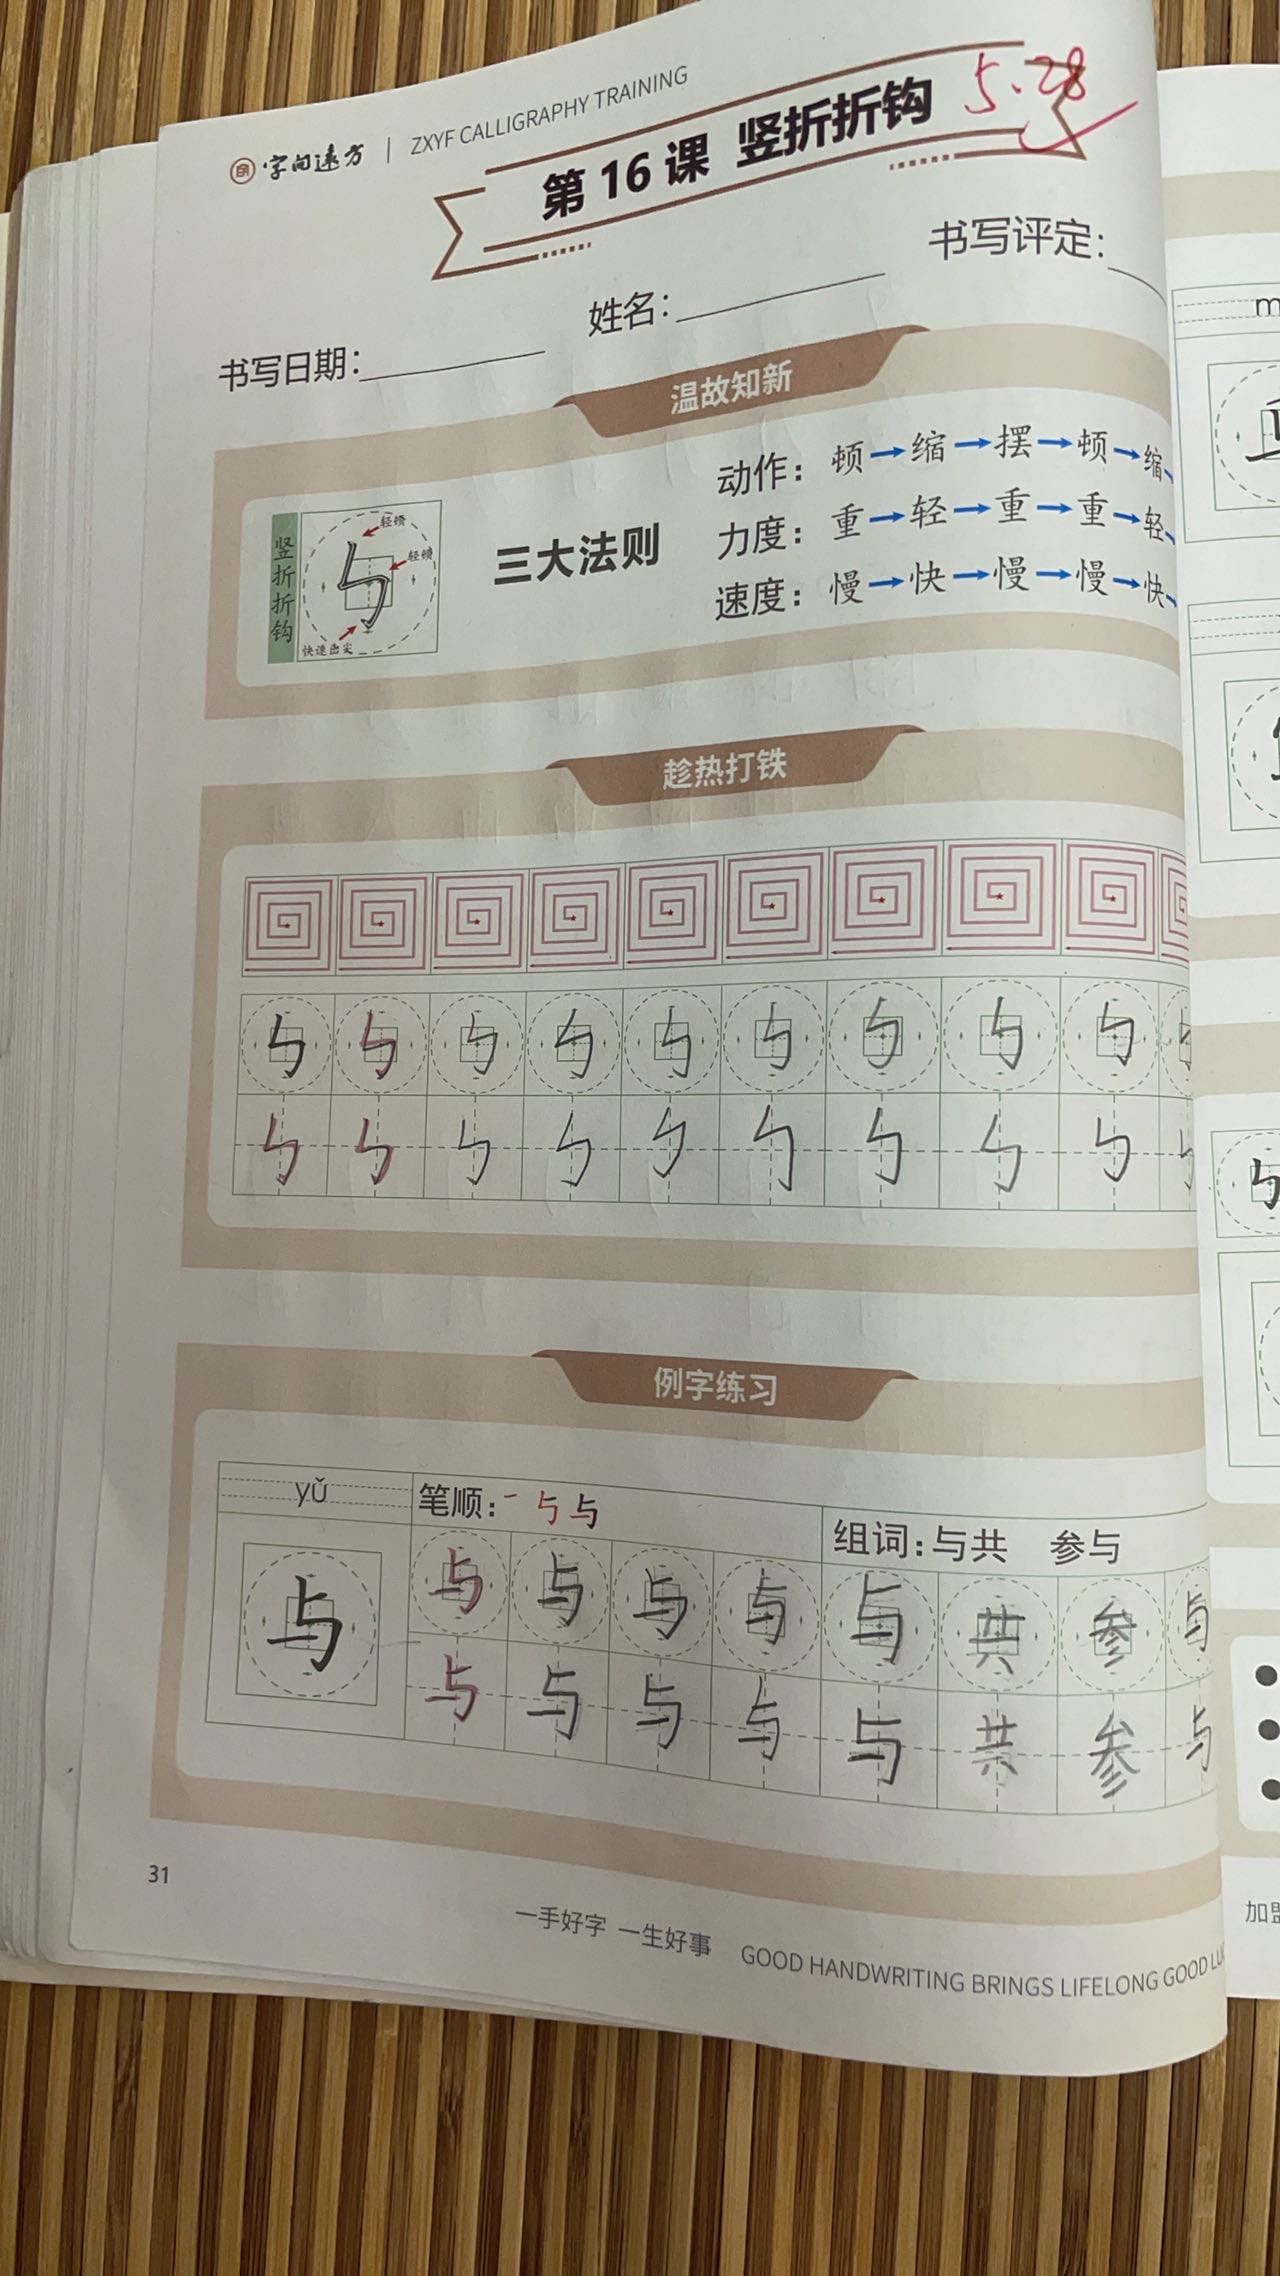 字间远方 | ZXYF CALLIGRAPHY TRAINING
第 16 课 竖折折钩 5.28
书写日期: 姓名: 书写评定:
温故知新
竖折折钩
轻顿
轻顿
快速出尖
三大法则
动作: 顿→缩→摆→顿→缩
力度: 重→轻→重→重→轻
速度: 慢→快→慢→慢→快
趁热打铁
例字练习
yǔ 笔顺: 一 与 组词: 与共 参与
与 与 与 与 与 与 共 参 与
与 与 与 与 与 共 参 与
31
一手好字 一生好事 GOOD HANDWRITING BRINGS LIFELONG GOOD
加盟